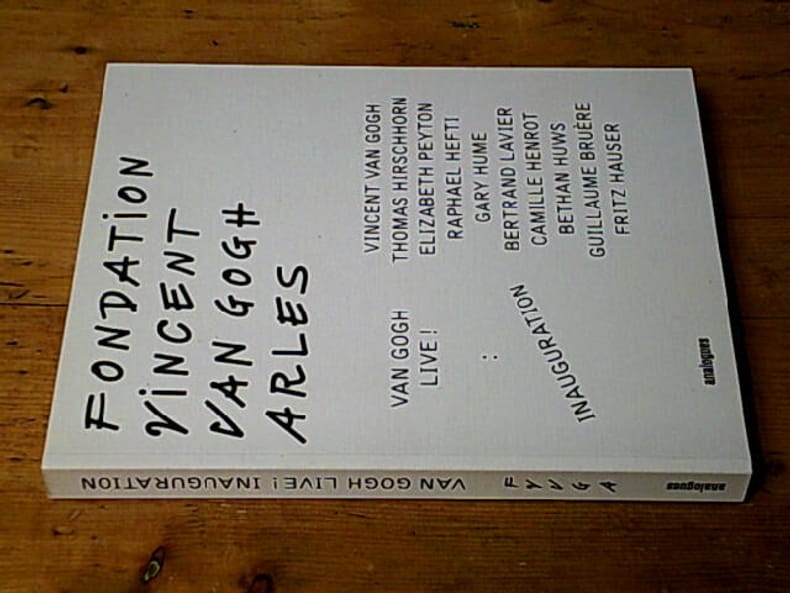 FONDATION
VINCENT
VAN GOGH
ARLES
VINCENT VAN GOGH
THOMAS HIRSCHHORN
ELIZABETH PEYTON
RAPHAEL HEFTI
GARY HUME
BERTRAND LAVIER
CAMILLE HENROT
BETHAN HUWS
GUILLAUME BRUÈRE
FRITZ HAUSER
VAN GOGH
LIVE!
:
INAUGURATION
analogues
VAN GOGH LIVE! INAUGURATION
F V V G A
analogues